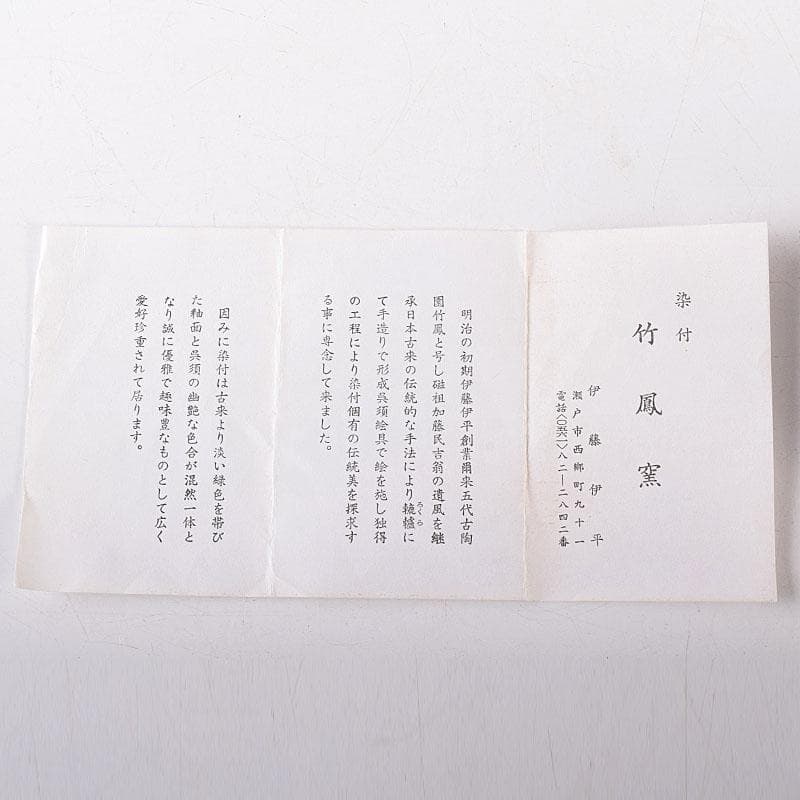 染付
竹鳳窯
伊藤伊平
瀬戸市西郷町九十一
電話(〇五六一)八二―二八四二番
明治の初期伊藤伊平創業爾来五代古陶
園竹鳳と号し磁祖加藤民吉翁の遺風を継
承日本古来の伝統的な手法により轆轤に
ろくろ
て手造りで形成呉須絵具で絵を施し独得
の工程により染付個有の伝統美を探求す
る事に専念して来ました。
因みに染付は古来より淡い緑色を帯び
た釉面と呉須の幽艶な色合が混然一体と
なり誠に優雅で趣味豊なものとして広く
愛好珍重されて居ります。